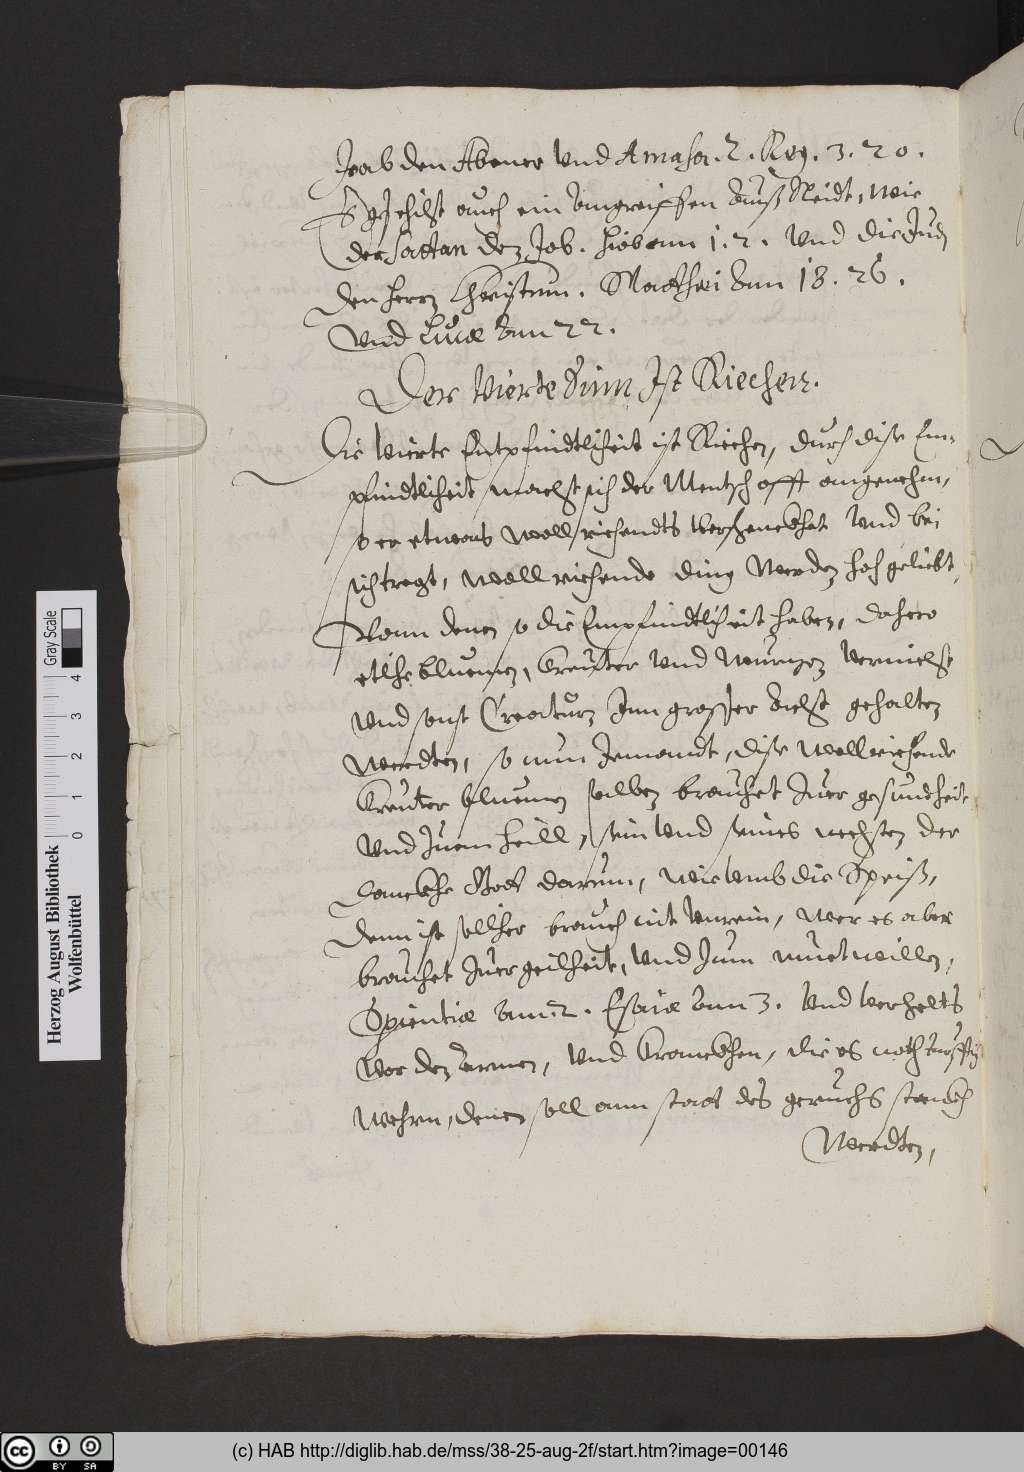 Joab den Abener Vnd Amasa. 2. Reg. 3. 20.
Es geschihst auch ein Angreiffen Auß Neidt, wie
der Sattan dez Job. Hiob am 1. 2. Vnd die Judz
den herrz Christum. Matthæi Am 18. 26.
Vnd Lucæ Am 22.
Der Vierte Sinn Ist Riechen.
Die Vierte Entpfindtlicheit ist Riechen, durch dise Em-
pfindtlicheit, machst sich der Mentsch offt angenehm,
so er etwas wollriechendts bei
sich tregt, wollriechende ding Werden hoch geliebt,
Vonn denen so die Empfindtlicheit haben, dahero
etliche bluemen, Kreutter Vnd Wurtzen
Vnd sonst Creaturn Inn grosser gehalten
werdten, so nun Jemandt, dise Wollriechende
Kreutter bluemen salben brauchet Zuer gesundtheit
Vnd Zuem heill, sein Vnd seines nechsten der
danckhe Gott darum, wie Vmb die Speiß,
denn ist sollcher brauch nit Vnrein, wer es aber
brauchet Zuer geilheit, Vnd Zum muetwillen,
Spientiæ Am 2. Esaiæ Am 3. Vnd Verhelts
Vor den armen, Vnd Kranckhen, die es noth
wehrn, denen soll ann statt des geruchs stanckh
Werdten,
Herzog August Bibliothek
Wolfenbüttel
0 1 2 3 4
Gray Scale
cc BY SA
(c) HAB http://diglib.hab.de/mss/38-25-aug-2f/start.htm?image=00146